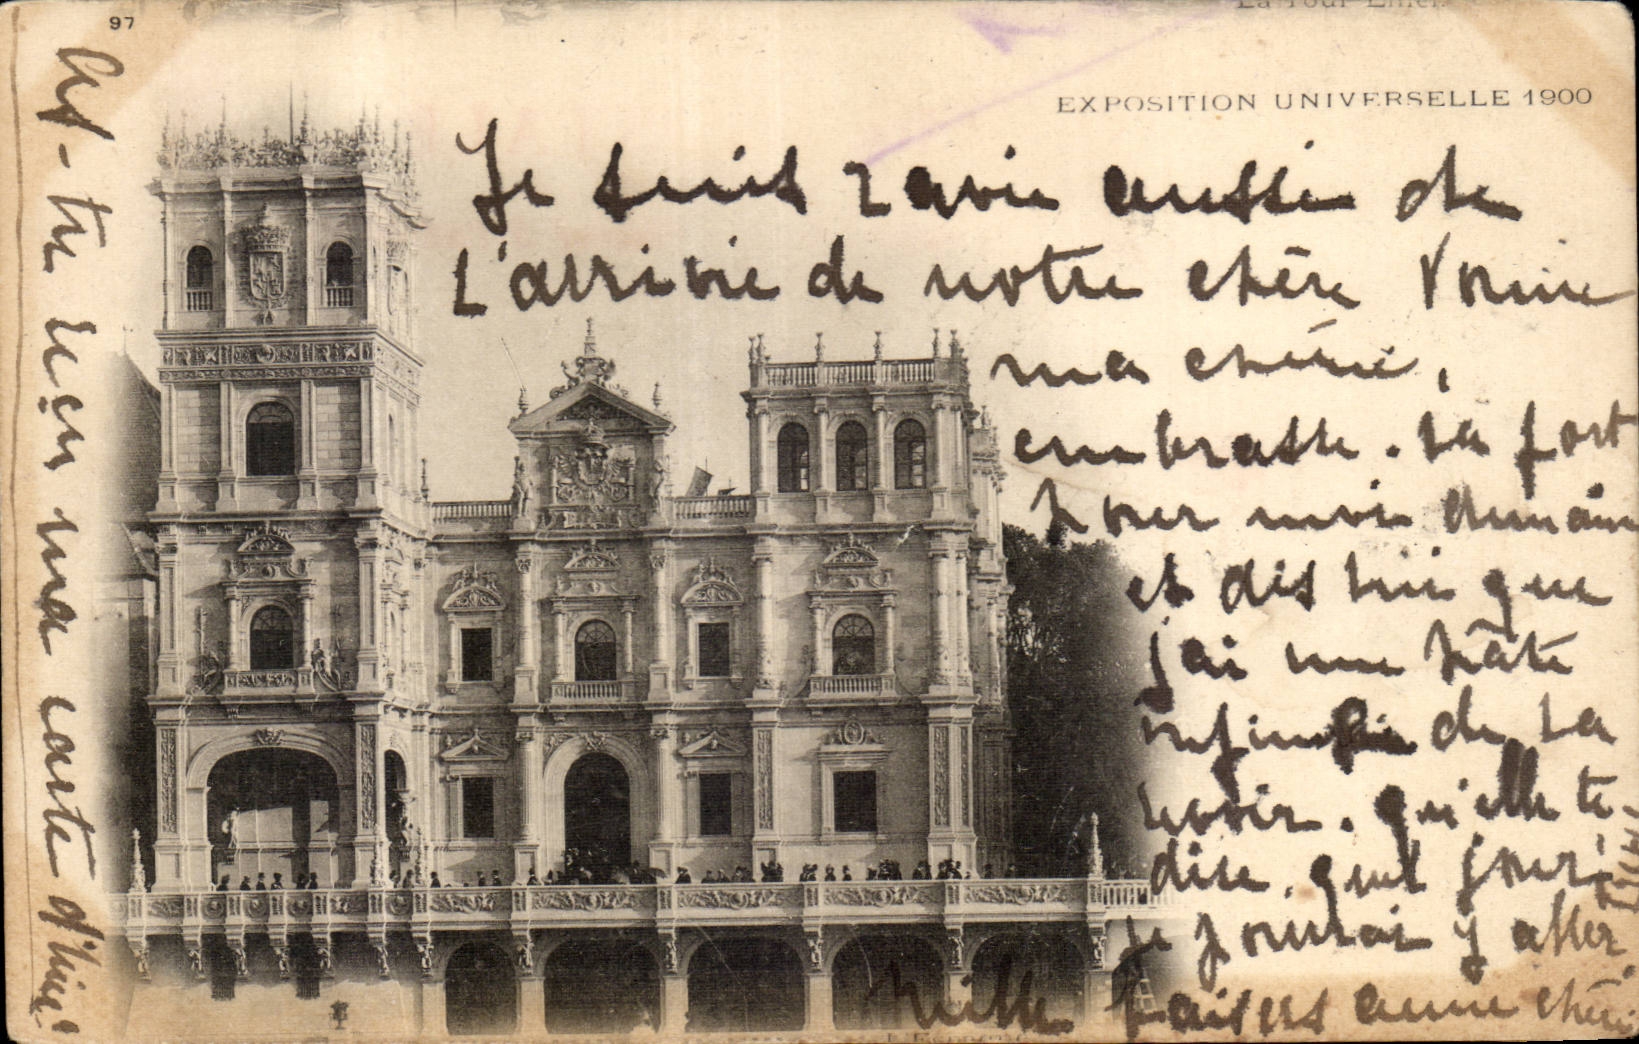 97
La Tour Eiffel
EXPOSITION UNIVERSELLE 1900
Je suis ravie aussi de
l'arrivée de notre chère
ma chérie,
embrasse. la fort
pour moi demain
et dis lui que
j'ai une hâte
infinie de la
revoir. qu'elle te
dise. quel jour
je pourrai y aller
Mille baisers chérie
As-tu reçu ma carte d'hier